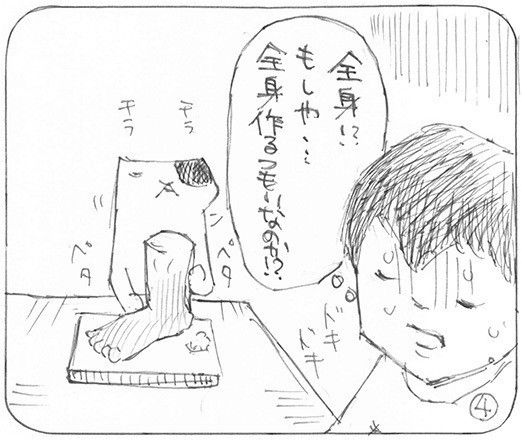 全身!?
もしや・・
全身作るつもりなのか!?
チラ
チラ
ペタ
ペタ
ドキ
ドキ
④